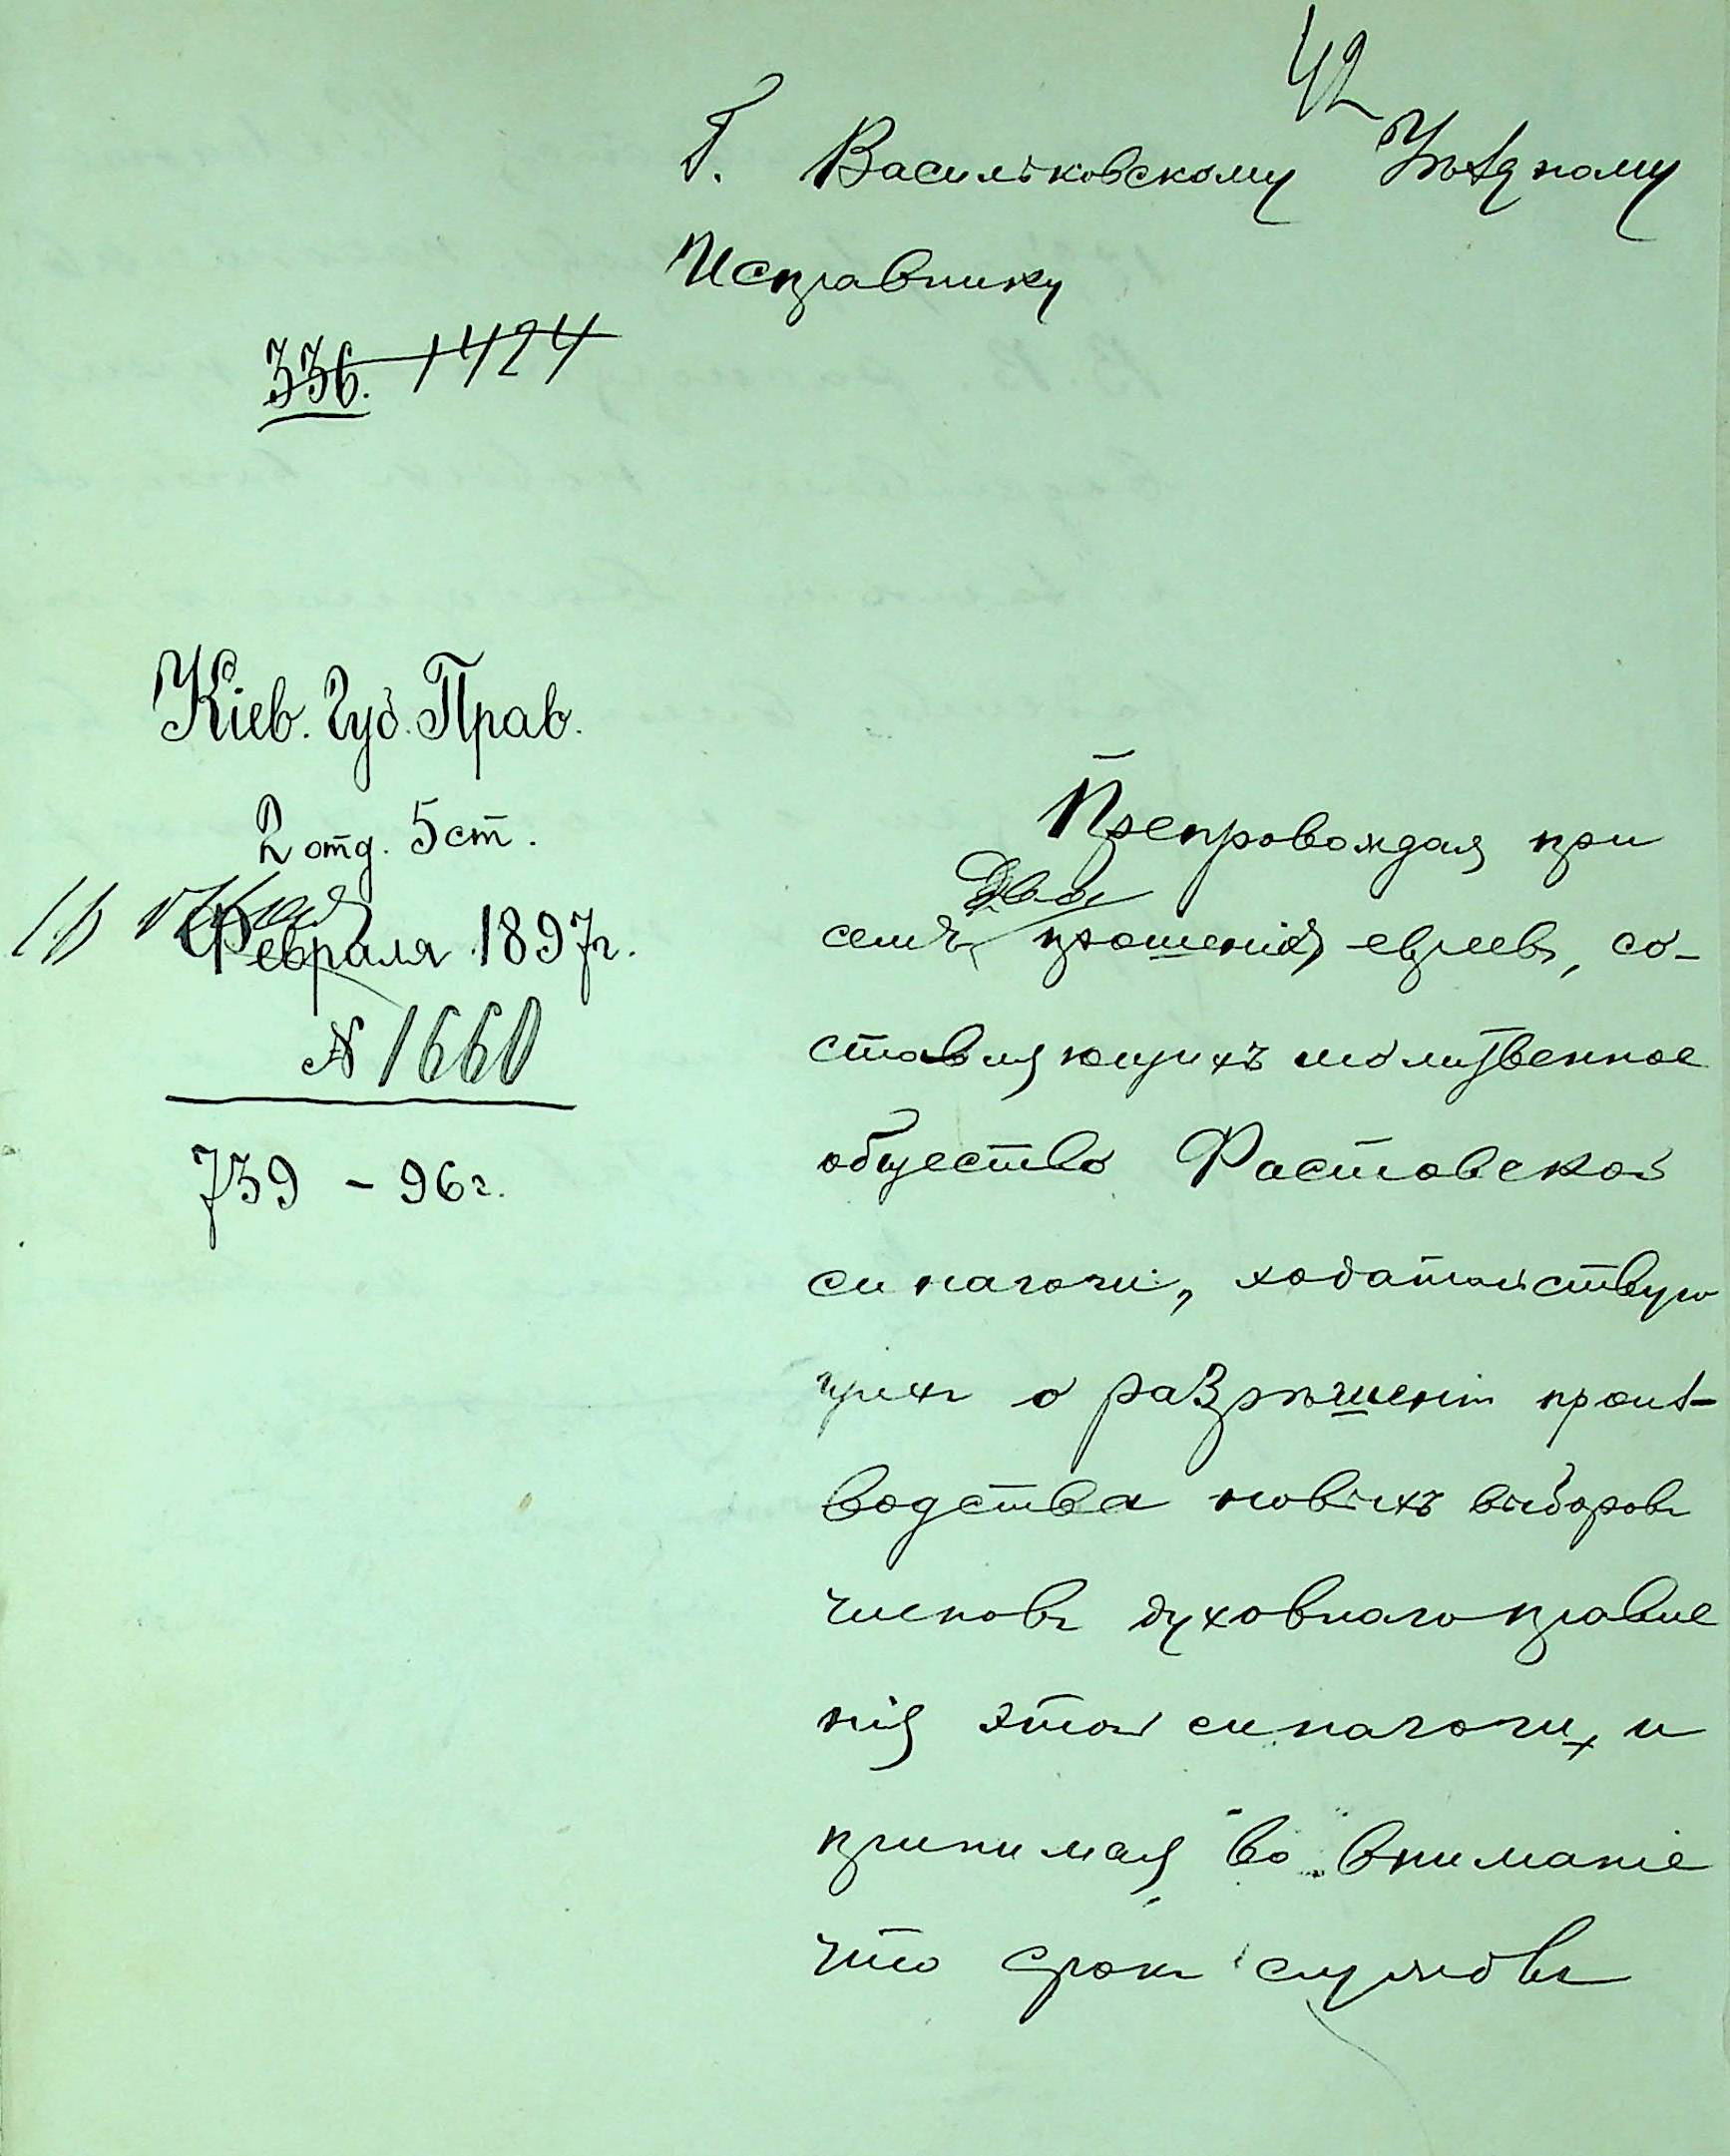 42
Г. Васильковскому Уѣздному
Исправнику
336. 1424
Кіев. Губ. Прав.
2 отд. 5 ст.
Февраля 1897 г.
№ 1660
739 – 96 г.
Препровождая при
два
семъ прошенія евреевъ, со-
ставляющихъ молитвенное
общество Фастовской
синагоги, ходатайствую
щихъ о разрѣшеніи произ-
водства новыхъ выборовъ
членовъ духовнаго правле
нія этой синагоги, и
принимая во вниманіе
что срокъ службы